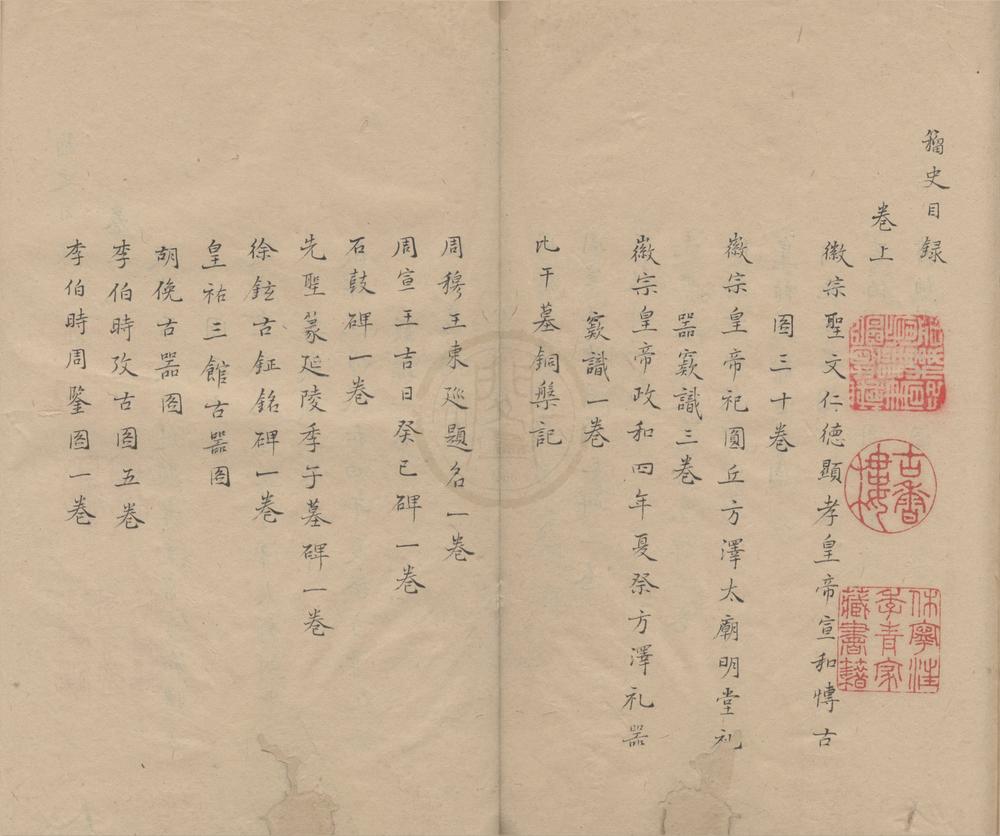 籀史目録
卷上
徽宗聖文仁德顯孝皇帝宣和博古
圖三十卷
徽宗皇帝祀圓丘方澤太廟明堂礼
器款識三卷
徽宗皇帝政和四年夏祭方澤礼器
款識一卷
比干墓銅槃記
周穆王東廵題名一卷
周宣王吉日癸巳碑一卷
石鼓碑一卷
先聖篆延陵季子墓碑一卷
徐鉉古鉦銘碑一卷
皇祐三館古器圖
胡俛古器圖
李伯時攷古圖五卷
李伯時周鑒圖一卷
古香樓
休寧汪季青家藏書籍